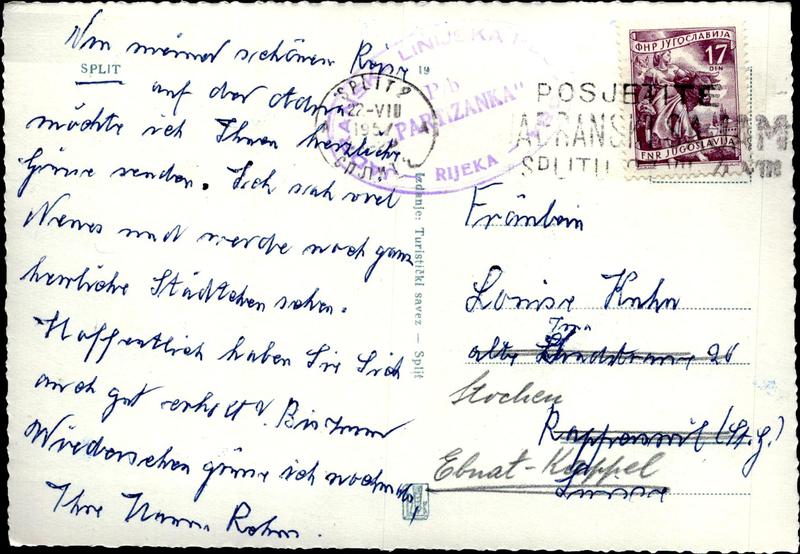 Von meiner schönen Reise
SPLIT
19
auf der Adria
möchte ich Ihnen herzliche
Grüsse senden. Ich sah viel
Neues und werde noch ganz
herrliche Städtchen sehen.
Hoffentlich haben Sie Sich
auch gut erholt. Bis zum
Wiedersehen grüsse ich nochmals
Ihre Hanna Rohn.
LINIJSKA
P. b
"PARTIZANKA"
RIJEKA
SPLIT 2
22-VIII
195
СПЛИТ
POSJETITE
JADRANSKI SAJAM
SPLITU
ФНР ЈУГОСЛАВИЈА
17
DIN
FNR JUGOSLAVIJA
Izdanje: Turistički savez — Split
Fräulein
Louise Kuhn
alte Landstrasse 26
Stochen
Rapperswil (St. G.)
Ebnat-Kappel
Suisse